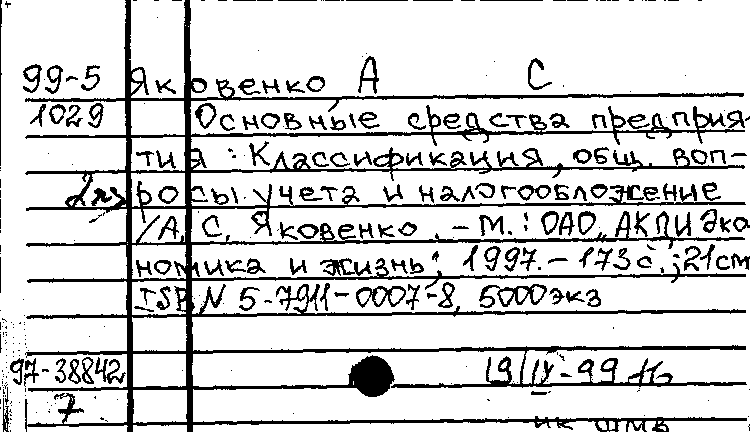 99-5 Яковенко, А С
1029 Основные средства предприя-
тия : Классификация, общ. воп-
2 яз росы учета и налогообложение
/А. С. Яковенко. - М. : ОАО "АКДИ Эко
номика и жизнь", 1997. - 173 с. ; 21 см
ISBN 5-7911-0007-8, 5000 экз
97-38842 19/IX-99
7